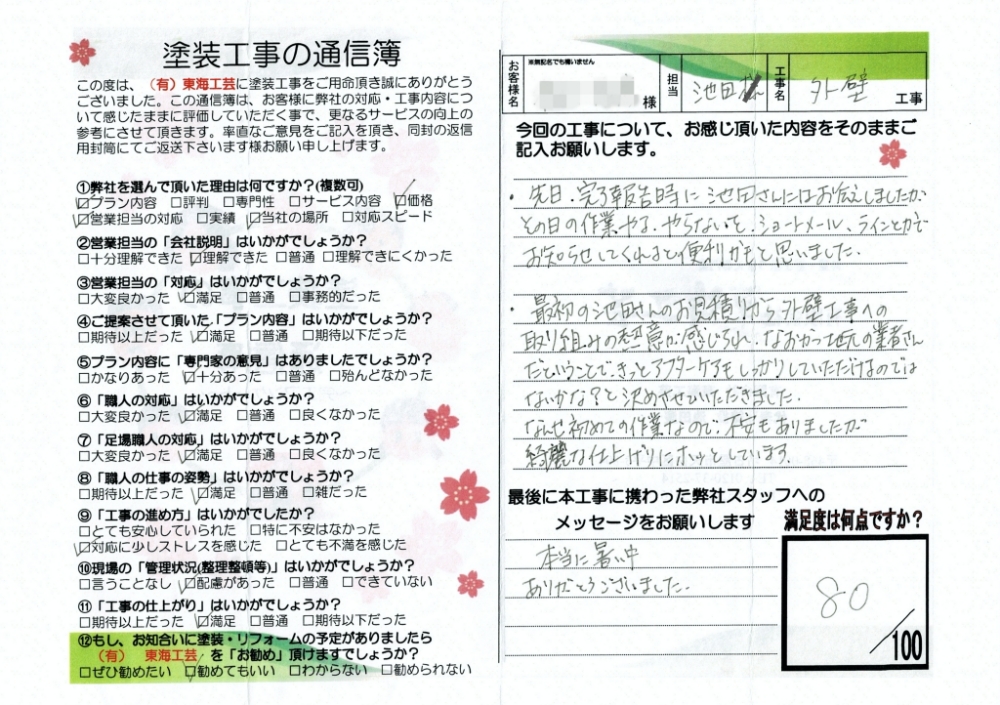 塗装工事の通信簿
この度は、(有)東海工芸に塗装工事をご用命頂き誠にありがとう
ございました。この通信簿は、お客様に弊社の対応・工事内容につ
いて感じたままに評価していただく事で、更なるサービスの向上の
参考にさせて頂きます。率直なご意見をご記入を頂き、同封の返信
用封筒にてご返送下さいます様お願い申し上げます。
①弊社を選んで頂いた理由は何ですか?(複数可)
☑プラン内容 □評判 □専門性 □サービス内容 ☑価格
☑営業担当の対応 □実績 ☑当社の場所 □対応スピード
②営業担当の「会社説明」はいかがでしょうか?
□十分理解できた ☑理解できた □普通 □理解できにくかった
③営業担当の「対応」はいかがでしょうか?
□大変良かった ☑満足 □普通 □事務的だった
④ご提案させて頂いた「プラン内容」はいかがでしょうか?
□期待以上だった ☑満足 □普通 □期待以下だった
⑤プラン内容に「専門家の意見」はありましたでしょうか?
□かなりあった ☑十分あった □普通 □殆んどなかった
⑥「職人の対応」はいかがでしょうか?
□大変良かった ☑満足 □普通 □良くなかった
⑦「足場職人の対応」はいかがでしょうか?
□大変良かった ☑満足 □普通 □良くなかった
⑧「職人の仕事の姿勢」はいかがでしょうか?
□期待以上だった ☑満足 □普通 □雑だった
⑨「工事の進め方」はいかがでしたか?
□とても安心していられた □特に不安はなかった
☑対応に少しストレスを感じた □とても不満を感じた
⑩現場の「管理状況(整理整頓等)」はいかがでしょうか?
□言うことなし ☑配慮があった □普通 □できていない
⑪「工事の仕上がり」はいかがでしょうか?
□期待以上だった ☑満足 □普通 □期待以下だった
⑫もし、お知合いに塗装・リフォームの予定がありましたら
(有) 東海工芸 を「お勧め」頂けますでしょうか?
□ぜひ勧めたい ☑勧めてもいい □わからない □勧められない
お客様名 ※無記名でも構いません 様 担当 池田様 工事名 外壁 工事
今回の工事について、お感じ頂いた内容をそのままご
記入お願いします。
・先日、完了報告時に池田さんにはお伝えしましたが
その日の作業やる、やらないを、ショートメール、ラインとかで
お知らせしてくれると便利かもと思いました。
・最初の池田さんのお見積りから外壁工事への
取り組みの熱意が感じられ、なおかつ地元の業者さん
だということで、きっとアフターケアもしっかりしていただけるのでは
ないかな?と決めさせていただきました。
なんせ初めての作業なので、不安もありましたが
綺麗な仕上げりにホッとしています。
最後に本工事に携わった弊社スタッフへの
メッセージをお願いします
本当に暑い中
ありがとうございました。
満足度は何点ですか?
80/100